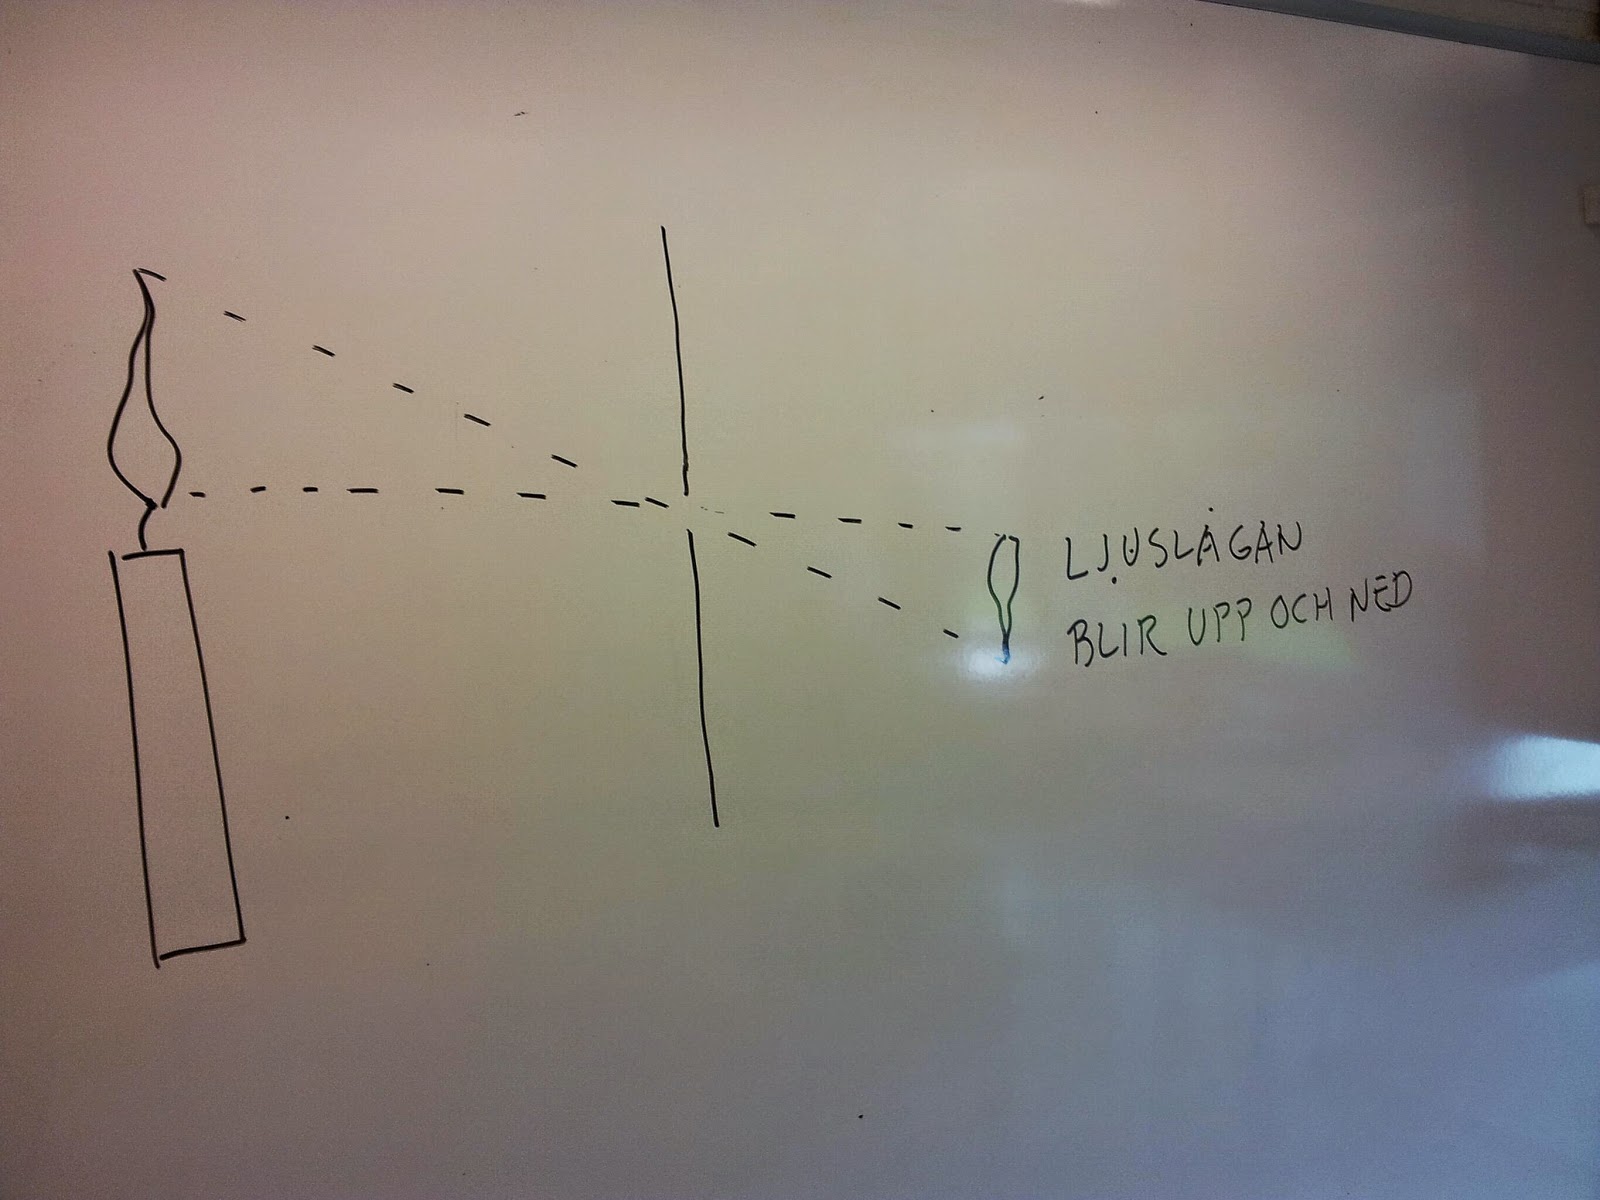 LJUSLÅGAN
BLIR UPP OCH NED